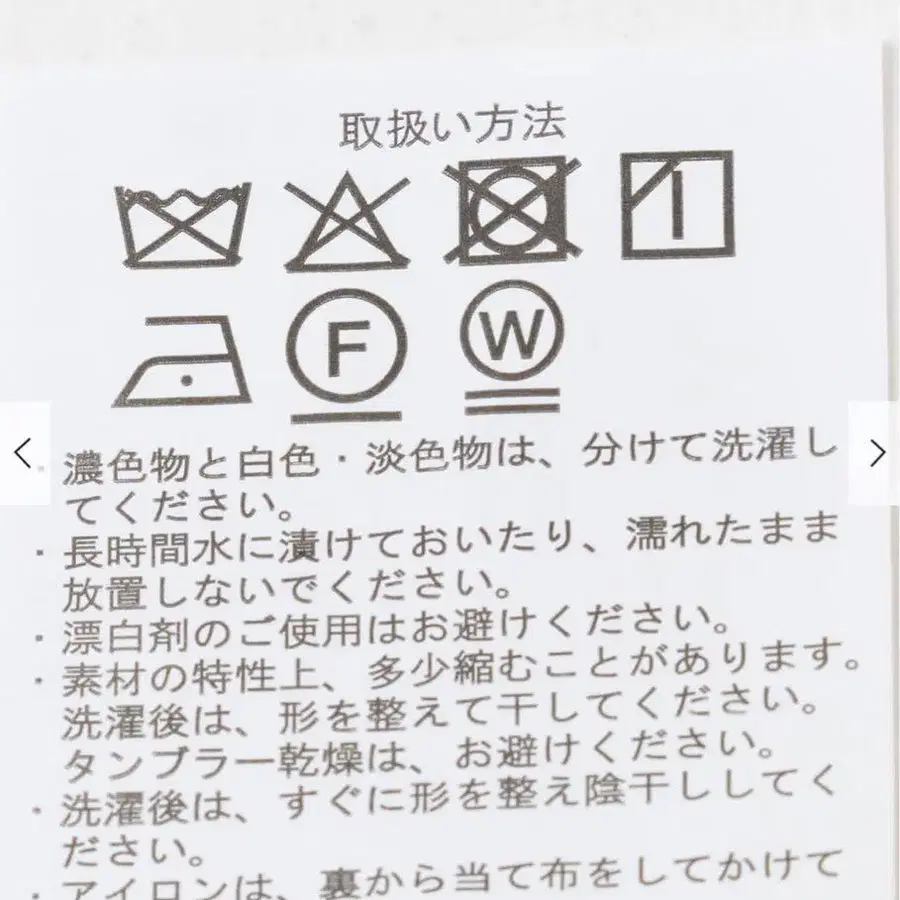 取扱い方法
F W
・濃色物と白色・淡色物は、分けて洗濯し
てください。
・長時間水に漬けておいたり、濡れたまま
放置しないでください。
・漂白剤のご使用はお避けください。
・素材の特性上、多少縮むことがあります。
洗濯後は、形を整えて干してください。
タンブラー乾燥は、お避けください。
・洗濯後は、すぐに形を整え陰干ししてく
ださい。
・アイロンは、裏から当て布をしてかけて